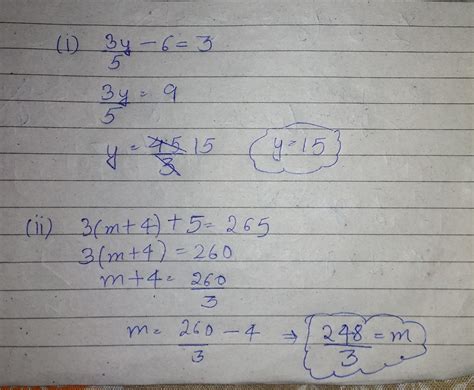 (i) 3y/5 - 6 = 3
3y/5 = 9
y = 45/3 15 y=15
(ii) 3(m+4) + 5 = 265
3(m+4) = 260
m+4 = 260/3
m = 260/3 - 4 ⇒ 248/3 = m